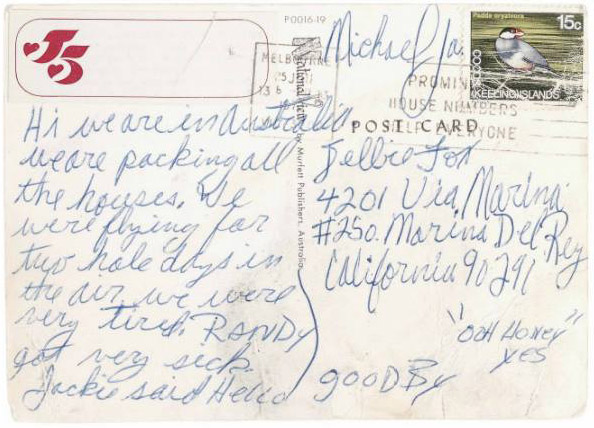 J5
P0016-19
Michael
Padda oryzivora
15c
COCOS
KEELING ISLANDS
MELBOURNE
HOUSE NUMBERS
HELP EVERYONE
POST CARD
by Murfett Publishers, Australia.
Hi we are in Australia
we are packing all
the houses. We
were flying for
two hole days in
the air, we were
very tired. RANDY
got very sick.
Jackie said Hello
4201 Via Marina
#250. Marina Del Rey
California 90291
"OOH HONEY"
YES
GOODBY